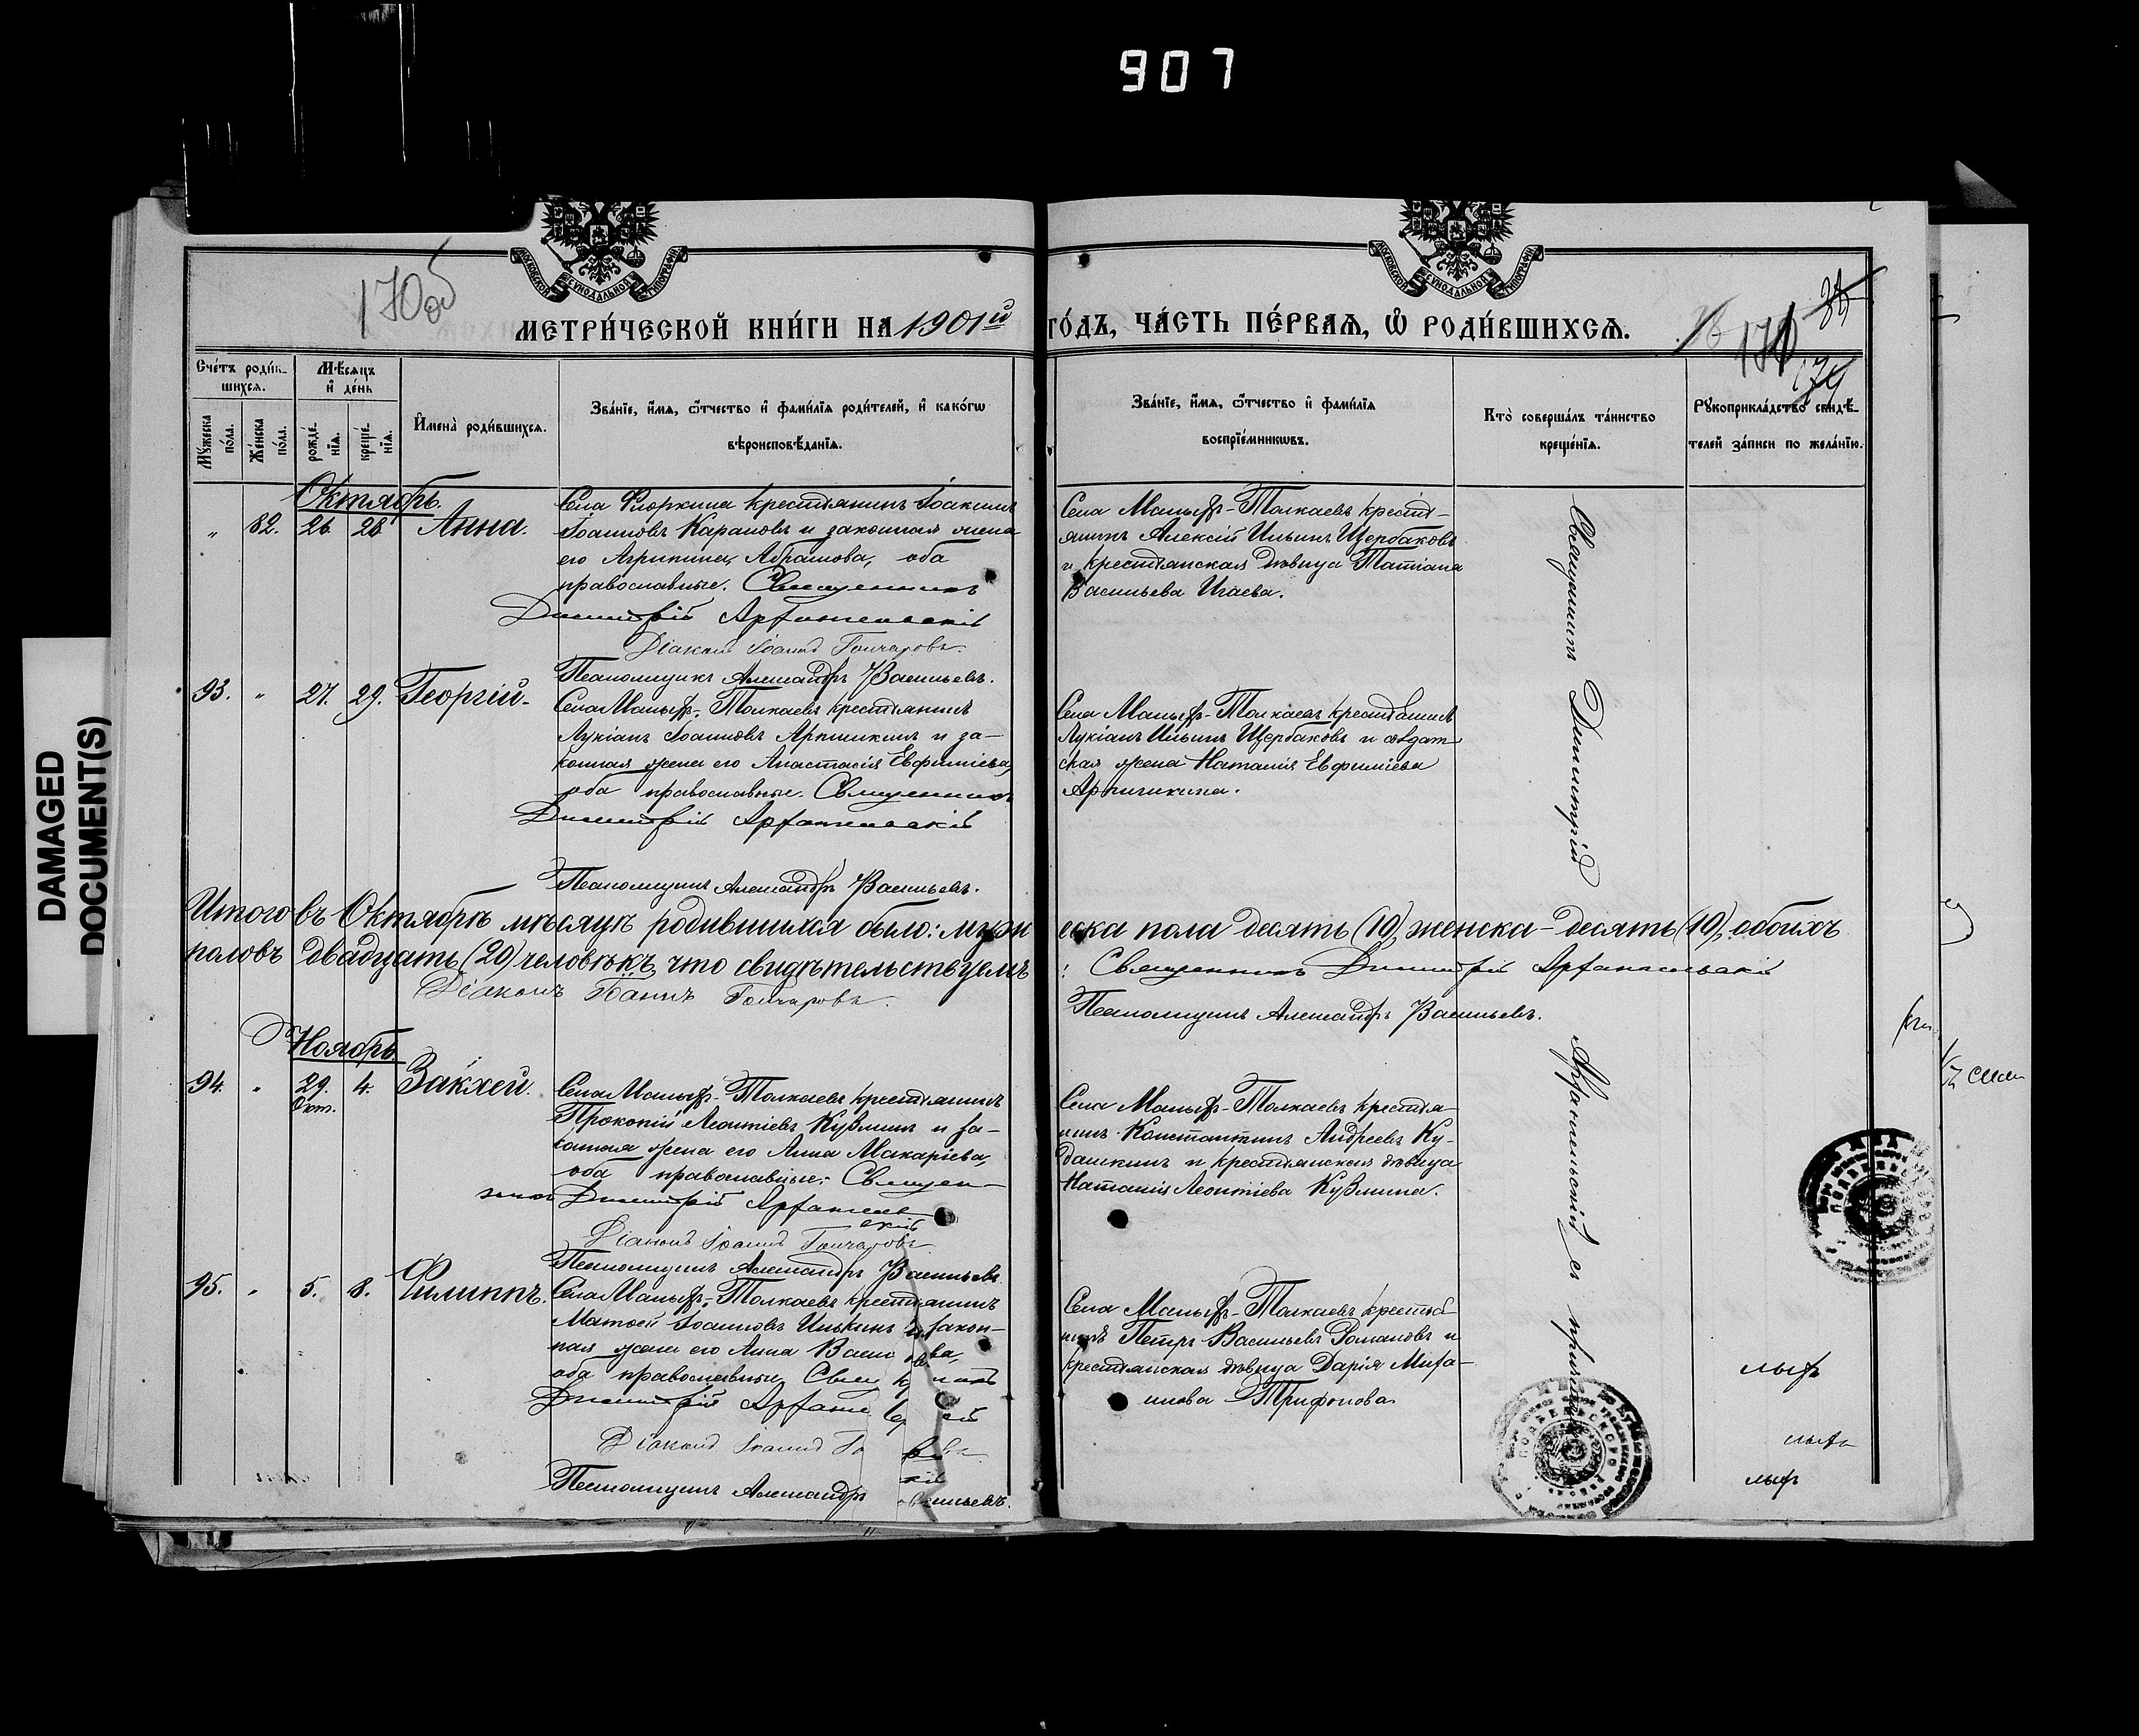 907
DAMAGED
DOCUMENT(S)
170об
МЕТРИ́ЧЕСКОЙ КНИ́ГИ НА 1901й ГО́ДЪ, ЧА́СТЬ ПЕ́РВАѦ, Ѡ҆ РОДИ́ВШИХСѦ.
171
Сче́тъ роди́вшихсѧ.
Мѣ́сѧцъ и҆ де́нь
И҆мена̀ роди́вшихсѧ.
Зва́нїе, и҆́мѧ, ѻ҆́тчество и҆ фами́лїѧ роди́телей, и҆ како́гѡ
вѣроисповѣ́данїѧ.
Зва́нїе, и҆́мѧ, ѻ҆́тчество и҆ фами́лїѧ
воспрїе́мникѡвъ.
Кто̀ соверша́лъ та́инство
креще́нїѧ.
Рꙋкоприкла́дство свидѣ́-
телей за́писи по жела́нїю.
Мꙋ́жеска по́ла.
Же́нска по́ла.
рожде́-
нїѧ.
креще́-
нїѧ.
Октябрь.
" 82. 26 28 Анна.
Села крестьянинъ Іоакимъ
Іоанновъ Карановъ и законная жена
его Агрипина Абрамова, оба
православные. Священникъ
Димитрій Архангельскій
Діаконъ Іоаннъ Гончаровъ.
Псаломщикъ Александръ Васильевъ.
Села Малыхъ-Толкаевъ кресть-
янинъ Алексій Ильинъ Щербаковъ
и крестьянская дѣвица Татіана
Васильева Игаева.
93. " 27. 29. Георгій.
Села Малыхъ-Толкаевъ крестьянинъ
Лукіанъ Іоанновъ и за-
конная жена его Анастасія Евфиміева,
оба православные. Священникъ
Димитрій Архангельскій
Псаломщикъ Александръ Васильевъ.
Села Малыхъ-Толкаевъ крестьянинъ
Лукіанъ Ильинъ Щербаковъ и солдат-
ская жена Наталія Евфиміева
Итого въ Октябрѣ мѣсяцѣ родившихся было: мужеска пола десять (10), женска - десять (10), обоихъ
половъ двадцать (20) человѣкъ, что свидѣтельствуемъ: Священникъ Димитрій Архангельскій
Діаконъ Іоаннъ Гончаровъ.
Псаломщикъ Александръ Васильевъ.
Ноябрь.
94. " 29. Окт. 4. Закхей.
Села Малыхъ-Толкаевъ крестьянинъ
Прокопій Леонтіевъ Кузминъ и за-
конная жена его Анна Макаріева,
оба православные. Священ-
никъ Димитрій Архангель-
скій
Діаконъ Іоаннъ Гончаровъ
Псаломщикъ Александръ Васильевъ
Села Малыхъ-Толкаевъ крестья-
нинъ Константинъ Андреевъ Ку-
дашкинъ и крестьянская дѣвица
Наталія Леонтіева Кузмина.
95. " 5. 8. Филиппъ.
Села Малыхъ-Толкаевъ крестьянинъ
Матѳей Іоанновъ и закон-
ная жена его Анна
оба православные
Димитрій
Діаконъ Іоаннъ
Псаломщикъ Александръ
Села Малыхъ-Толкаевъ крестья-
нинъ Петръ Васильевъ Романовъ и
крестьянская дѣвица Дарія Миха-
илова Трифонова.
Священникъ Димитрій Архангельскій съ